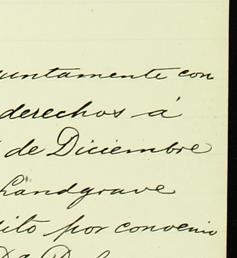 untamente con
derechos á
de Diciembre
Landgrave
dito por convenio